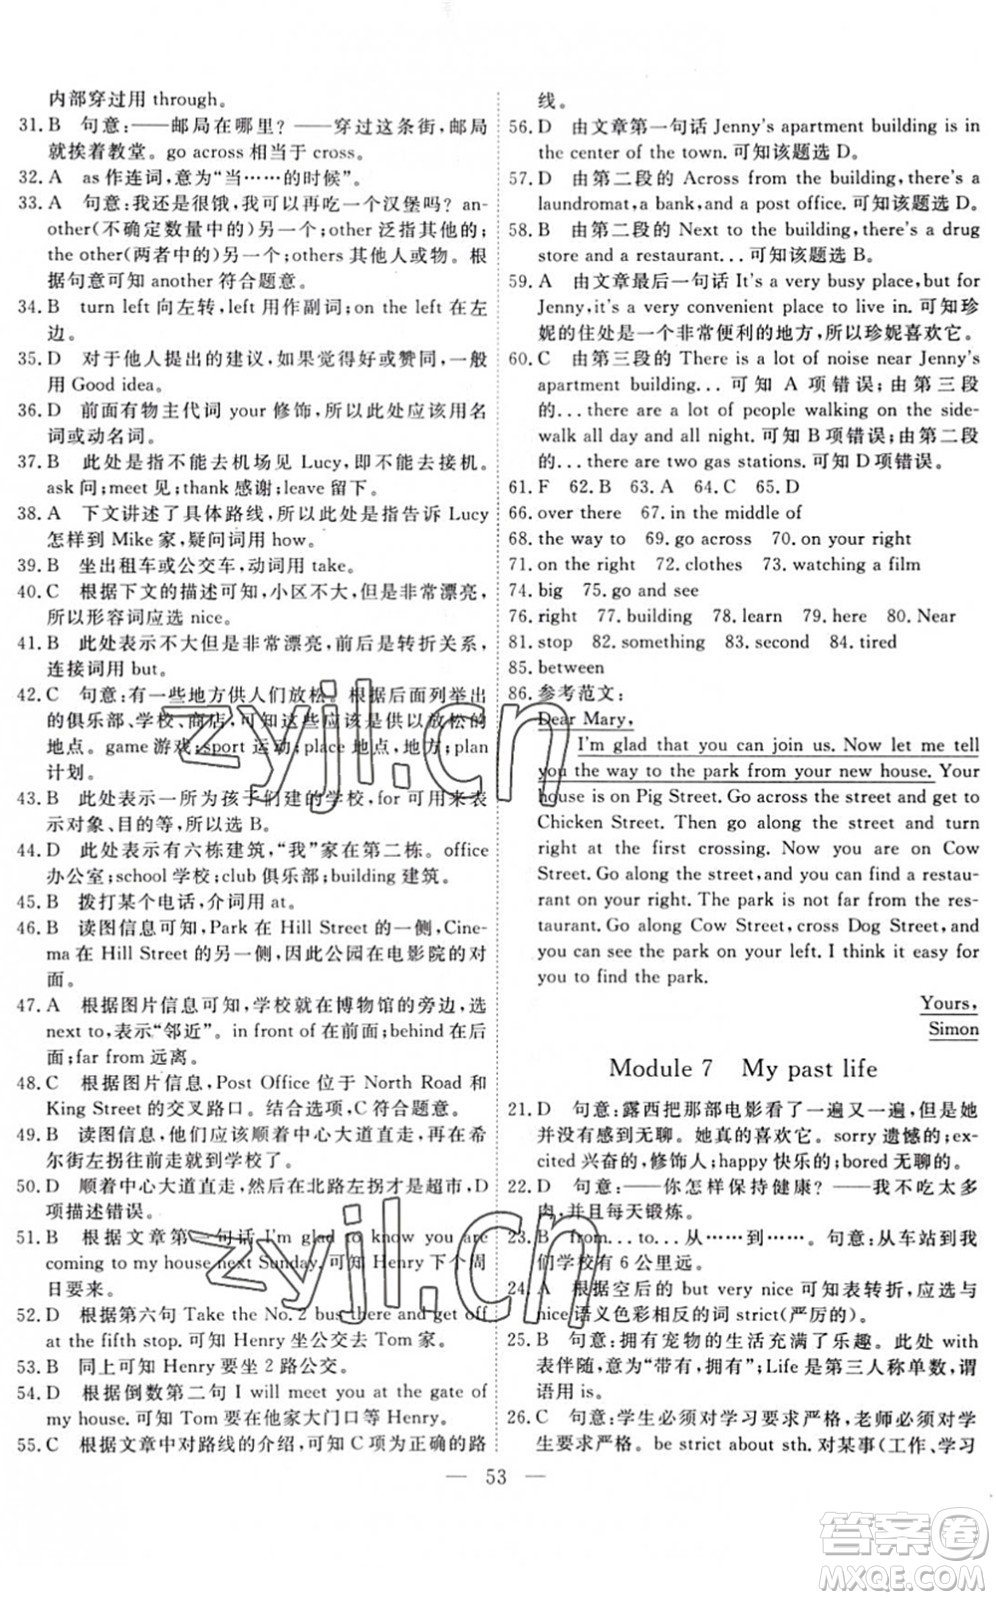 内部穿过用 through。
31. B 句意:——邮局在哪里?——穿过这条街,邮局
就挨着教堂。go across 相当于 cross。
32. A as 作连词,意为“当……的时候”。
33. A 句意:我还是很饿,我可以再吃一个汉堡吗? an-
other(不确定数量中的)另一个;other 泛指其他的;
the other(两者中的)另一个;others 其他人或物。根
据句意可知 another 符合题意。
34. B turn left 向左转,left 用作副词;on the left 在左
边。
35. D 对于他人提出的建议,如果觉得好或赞同,一般
用 Good idea。
36. D 前面有物主代词 your 修饰,所以此处应该用名
词或动名词。
37. B 此处是指不能去机场见 Lucy,即不能去接机。
ask 问;meet 见;thank 感谢;leave 留下。
38. A 下文讲述了具体路线,所以此处是指告诉 Lucy
怎样到 Mike 家,疑问词用 how。
39. B 坐出租车或公交车,动词用 take。
40. C 根据下文的描述可知,小区不大,但是非常漂亮,
所以形容词应选 nice。
41. B 此处表示不大但是非常漂亮,前后是转折关系,
连接词用 but。
42. C 句意:有一些地方供人们放松。根据后面列举出
的俱乐部、学校、商店,可知这些应该是供以放松的
地点。game 游戏;sport 运动;place 地点,地方;plan
计划。
43. B 此处表示一所为孩子们建的学校,for 可用来表
示对象、目的等,所以选 B。
44. D 此处表示有六栋建筑,“我”家在第二栋。office
办公室;school 学校;club 俱乐部;building 建筑。
45. B 拨打某个电话,介词用 at。
46. B 读图信息可知,Park 在 Hill Street 的一侧,Cine-
ma 在 Hill Street 的另一侧,因此公园在电影院的对
面。
47. A 根据图片信息可知,学校就在博物馆的旁边,选
next to,表示“邻近”。in front of 在前面;behind 在后
面;far from 远离。
48. C 根据图片信息,Post Office 位于 North Road 和
King Street 的交叉路口。结合选项,C 符合题意。
49. B 读图信息,他们应该顺着中心大道直走,再在希
尔街左拐往前走就到学校了。
50. D 顺着中心大道直走,然后在北路左拐才是超市,D
项描述错误。
51. B 根据文章第一句话 I'm glad to know you are
coming to my house next Sunday. 可知 Henry 下个周
日要来。
52. D 根据第六句 Take the No. 2 bus there and get off
at the fifth stop. 可知 Henry 坐公交去 Tom 家。
53. B 同上可知 Henry 要坐 2 路公交。
54. D 根据倒数第二句 I will meet you at the gate of
my house. 可知 Tom 要在他家大门口等 Henry。
55. C 根据文章中对路线的介绍,可知 C 项为正确的路
线。
56. D 由文章第一句话 Jenny's apartment building is in
the center of the town. 可知该题选 D。
57. D 由第二段的 Across from the building, there's a
laundromat, a bank, and a post office. 可知该题选 D。
58. B 由第二段的 Next to the building, there's a drug
store and a restaurant... 可知该题选 B。
59. A 由文章最后一句话 It's a very busy place, but for
Jenny, it's a very convenient place to live in. 可知珍
妮的住处是一个非常便利的地方,所以珍妮喜欢它。
60. C 由第三段的 There is a lot of noise near Jenny's
apartment building... 可知 A 项错误;由第三段
的... there are a lot of people walking on the side-
walk all day and all night. 可知 B 项错误;由第二段
的... there are two gas stations. 可知 D 项错误。
61. F 62. B 63. A 64. C 65. D
66. over there 67. in the middle of
68. the way to 69. go across 70. on your right
71. on the right 72. clothes 73. watching a film
74. big 75. go and see
76. right 77. building 78. learn 79. here 80. Near
81. stop 82. something 83. second 84. tired
85. between
86. 参考范文:
Dear Mary,
I'm glad that you can join us. Now let me tell
you the way to the park from your new house. Your
house is on Pig Street. Go across the street and get to
Chicken Street. Then go along the street and turn
right at the first crossing. Now you are on Cow
Street. Go along the street, and you can find a restau-
rant on your right. The park is not far from the res-
taurant. Go along Cow Street, cross Dog Street, and
you can see the park on your left. I think it is easy for
you to find the park.
Yours,
Simon
Module 7 My past life
21. D 句意:露西把那部电影看了一遍又一遍,但是她
并没有感到无聊。她真的喜欢它。sorry 遗憾的;ex-
cited 兴奋的,修饰人;happy 快乐的;bored 无聊的。
22. D 句意:——你怎样保持健康?——我不吃太多
肉,并且每天锻炼。
23. B from... to... 从……到……。句意:从车站到我
们学校有 6 公里远。
24. A 根据空后的 but very nice 可知表转折,应选与
nice 语义色彩相反的词 strict(严厉的)。
25. B 句意:拥有宠物的生活充满了乐趣。此处 with
表伴随,意为“带有,拥有”;Life 是第三人称单数,谓
语用 is。
26. C 句意:学生必须对学习要求严格,老师必须对学
生要求严格。be strict about sth. 对某事(工作、学习
— 53 —
zyjl.cn
zyjl.cn
答案圈
MXQE.COM